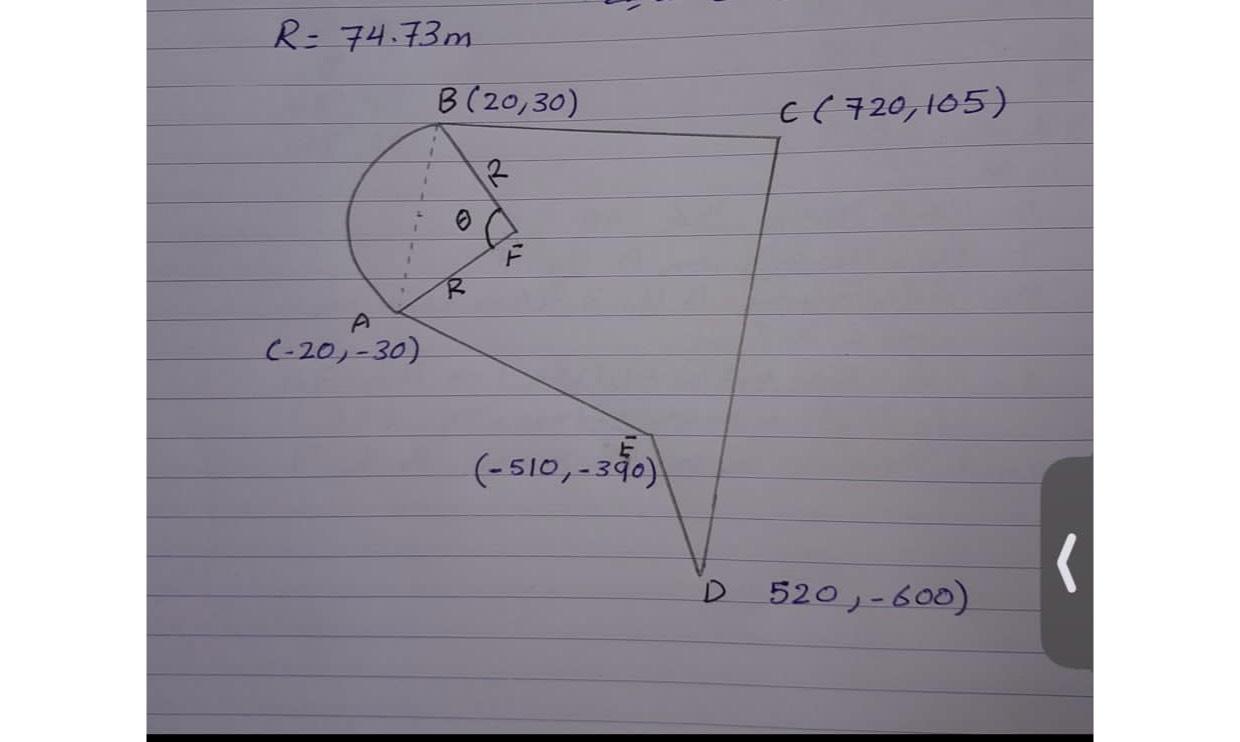 R = 74.73m
B (20,30)
C ( 720,105)
R
θ
F
R
A
(-20,-30)
E
(-510,-390)
D 520,-600)